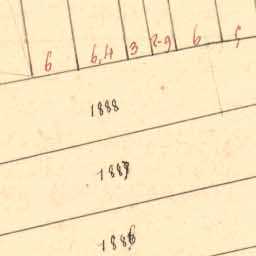 6 6,4 3 2-9 6 5
1888
1887
1886